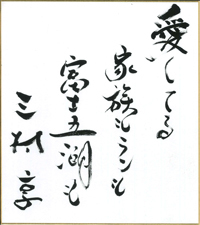 愛してる
家族もランも
富士五湖も
三村享